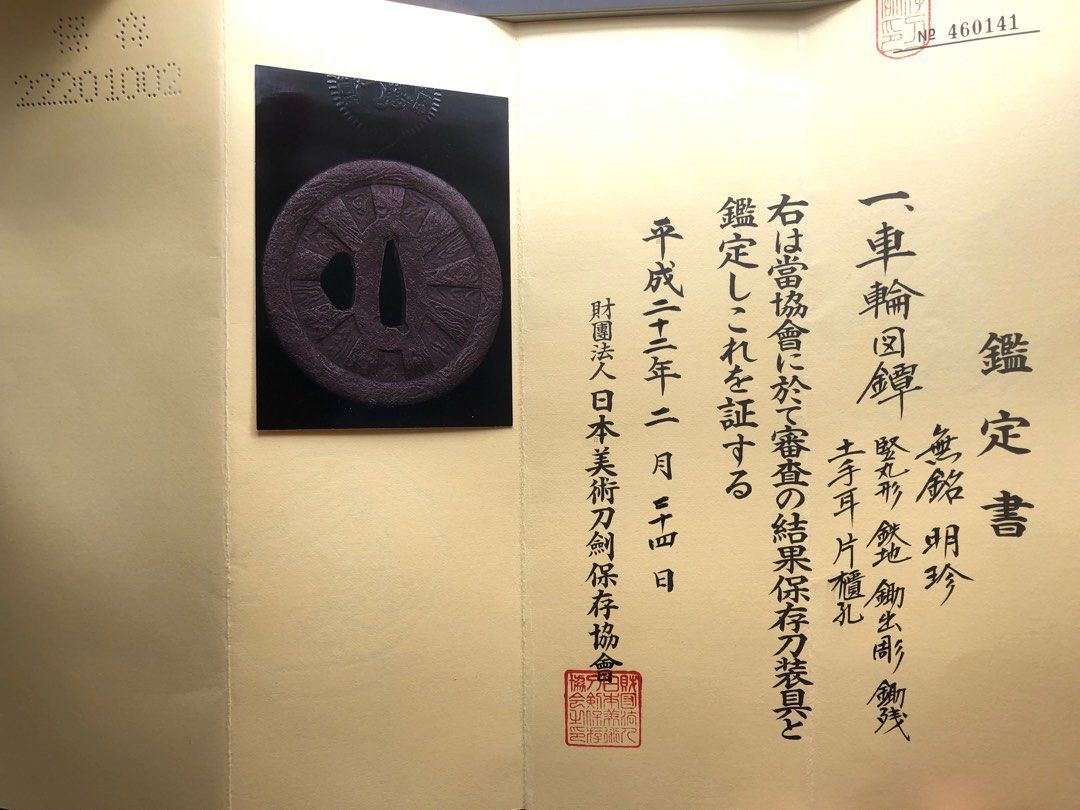 № 460141
鑑定書
一、車輪図鐔
無銘 明珍
竪丸形 鉄地 鋤出彫 鋤残
土手耳 片櫃孔
右は當協會に於て審査の結果保存刀装具と
鑑定しこれを証する
平成二十二年二月二十四日
財團法人 日本美術刀劍保存協會
財団法人
日本美術
刀剣保存
協会之印
保存
22201002